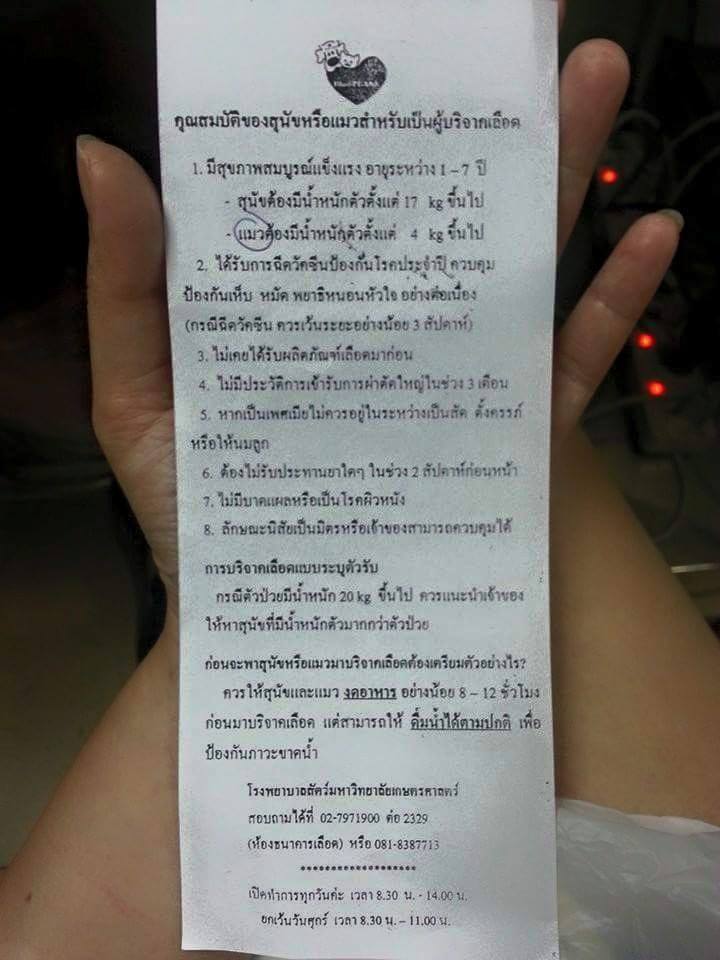 คุณสมบัติของสุนัขหรือแมวสำหรับเป็นผู้บริจาคเลือด
1. มีสุขภาพสมบูรณ์แข็งแรง อายุระหว่าง 1 – 7 ปี
- สุนัขต้องมีน้ำหนักตัวตั้งแต่ 17 kg ขึ้นไป
- แมวต้องมีน้ำหนักตัวตั้งแต่ 4 kg ขึ้นไป
2. ได้รับการฉีดวัคซีนป้องกันโรคประจำปี ควบคุม
ป้องกันเห็บ หมัด พยาธิหนอนหัวใจ อย่างต่อเนื่อง
(กรณีฉีดวัคซีน ควรเว้นระยะอย่างน้อย 3 สัปดาห์)
3. ไม่เคยได้รับผลิตภัณฑ์เลือดมาก่อน
4. ไม่มีประวัติการเข้ารับการผ่าตัดใหญ่ในช่วง 3 เดือน
5. หากเป็นเพศเมียไม่ควรอยู่ในระหว่างเป็นสัด ตั้งครรภ์
หรือให้นมลูก
6. ต้องไม่รับประทานยาใดๆ ในช่วง 2 สัปดาห์ก่อนหน้า
7. ไม่มีบาดแผลหรือเป็นโรคผิวหนัง
8. ลักษณะนิสัยเป็นมิตรหรือเจ้าของสามารถควบคุมได้
การบริจาคเลือดแบบระบุตัวรับ
กรณีตัวป่วยมีน้ำหนัก 20 kg ขึ้นไป ควรแนะนำเจ้าของ
ให้หาสุนัขที่มีน้ำหนักตัวมากกว่าตัวป่วย
ก่อนจะพาสุนัขหรือแมวมาบริจาคเลือดต้องเตรียมตัวอย่างไร?
ควรให้สุนัขและแมว งดอาหาร อย่างน้อย 8 – 12 ชั่วโมง
ก่อนมาบริจาคเลือด แต่สามารถให้ ดื่มน้ำได้ตามปกติ เพื่อ
ป้องกันภาวะขาดน้ำ
โรงพยาบาลสัตว์มหาวิทยาลัยเกษตรศาสตร์
สอบถามได้ที่ 02-7971900 ต่อ 2329
(ห้องธนาคารเลือด) หรือ 081-8387713
********************
เปิดทำการทุกวันค่ะ เวลา 8.30 น. - 14.00 น.
ยกเว้นวันศุกร์ เวลา 8.30 น. – 11.00 น.